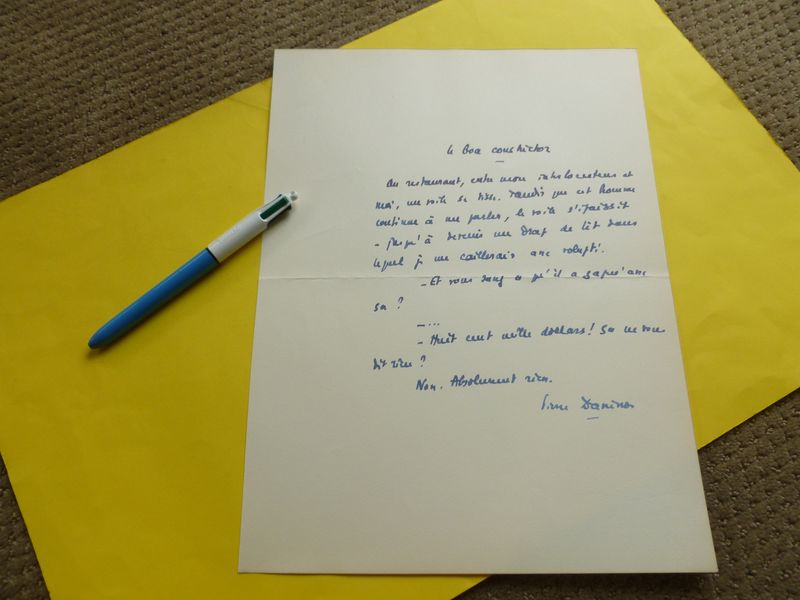 Le boa constrictor
Au restaurant, entre mon interlocuteur et
moi, un voile se tisse. Tandis que cet homme
continue à me parler, le voile s'épaissit
- jusqu'à devenir un drap de lit dans
lequel je me
- Et vous savez ce qu'il a gagné avec
ça ?
- ...
- Huit cent mille dollars! Ça ne vous
dit rien ?
Non. Absolument rien.
Pierre Daninos